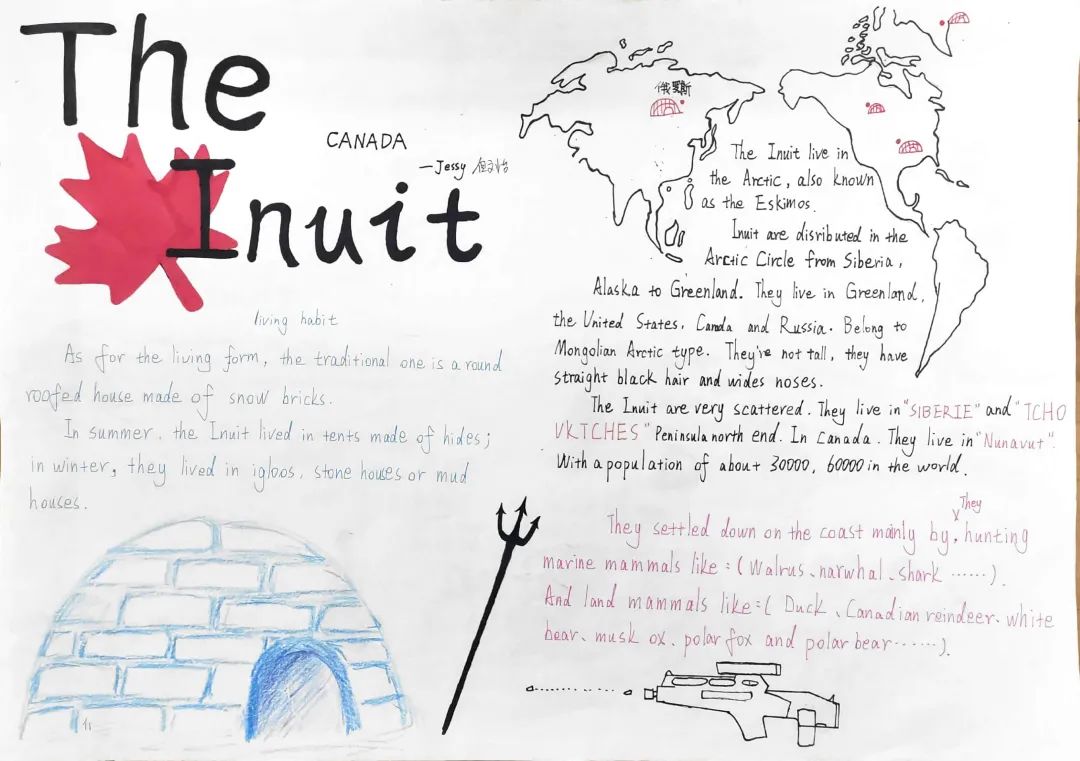 The
Inuit
CANADA
—Jessy
living habit
As for the living form, the traditional one is a round
roofed house made of snow bricks.
In summer, the Inuit lived in tents made of hides;
in winter, they lived in igloos, stone houses or mud
houses.
俄罗斯
The Inuit live in
the Arctic, also known
as the Eskimos.
Inuit are disributed in the
Arctic Circle from Siberia,
Alaska to Greenland. They live in Greenland,
the United States, Canada and Russia. Belong to
Mongolian Arctic type. They're not tall, they have
straight black hair and wides noses.
The Inuit are very scattered. They live in "SIBERIE" and "TCHO
VKTCHES" Peninsula north end. In Canada. They live in "Nunavut".
With a population of about 30000, 60000 in the world.
They
They settled down on the coast mainly by, hunting
marine mammals like:(Walrus、narwhal、shark ······).
And land mammals like:( Duck、Canadian reindeer、white
bear、musk ox、polar fox and polar bear······).